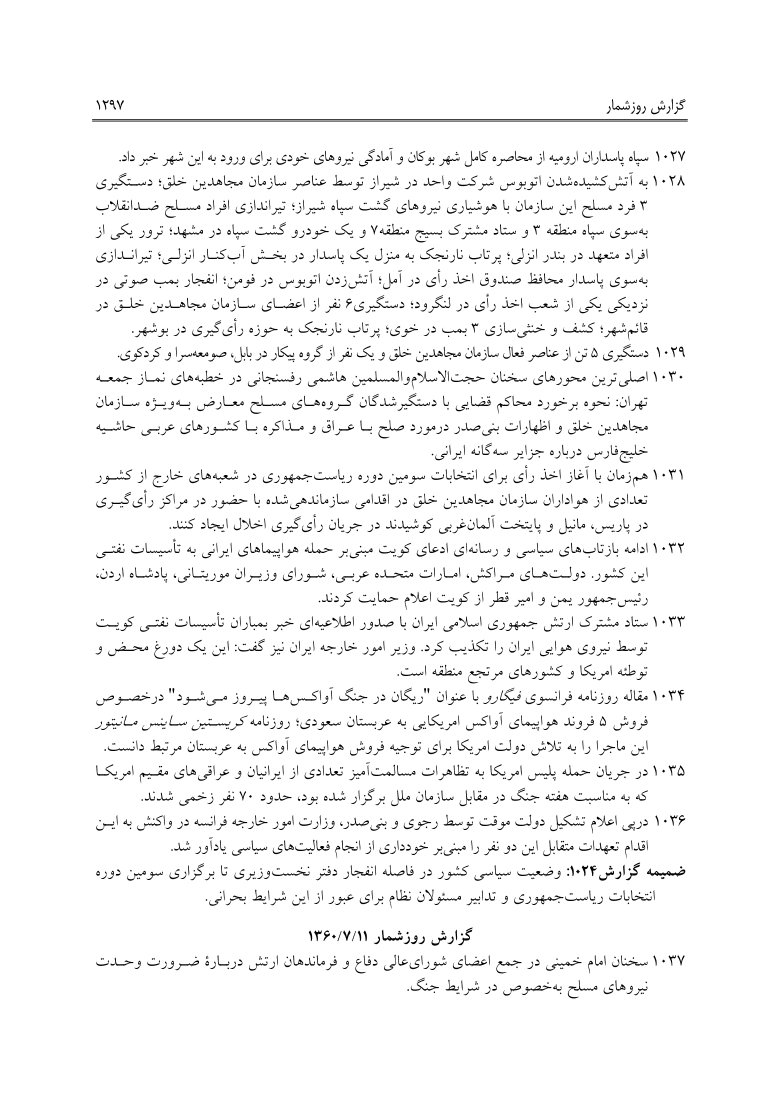 گزارش روزشمار ۱۲۹۷
۱۰۲۷ سپاه پاسداران ارومیه از محاصره کامل شهر بوکان و آمادگی نیروهای خودی برای ورود به این شهر خبر داد.
۱۰۲۸ به آتش‌کشیده‌شدن اتوبوس شرکت واحد در شیراز توسط عناصر سازمان مجاهدین خلق؛ دستگیری
۳ فرد مسلح این سازمان با هوشیاری نیروهای گشت سپاه شیراز؛ تیراندازی افراد مسلح ضدانقلاب
به‌سوی سپاه منطقه ۳ و ستاد مشترک بسیج منطقه۷ و یک خودرو گشت سپاه در مشهد؛ ترور یکی از
افراد متعهد در بندر انزلی؛ پرتاب نارنجک به منزل یک پاسدار در بخش آب‌کنار انزلی؛ تیراندازی
به‌سوی پاسدار محافظ صندوق اخذ رأی در آمل؛ آتش‌زدن اتوبوس در فومن؛ انفجار بمب صوتی در
نزدیکی یکی از شعب اخذ رأی در لنگرود؛ دستگیری۶ نفر از اعضای سازمان مجاهدین خلق در
قائم‌شهر؛ کشف و خنثی‌سازی ۳ بمب در خوی؛ پرتاب نارنجک به حوزه رأی‌گیری در بوشهر.
۱۰۲۹ دستگیری ۵ تن از عناصر فعال سازمان مجاهدین خلق و یک نفر از گروه پیکار در بابل، صومعه‌سرا و کردکوی.
۱۰۳۰ اصلی‌ترین محورهای سخنان حجت‌الاسلام‌والمسلمین هاشمی رفسنجانی در خطبه‌های نماز جمعه
تهران: نحوه برخورد محاکم قضایی با دستگیرشدگان گروه‌های مسلح معارض به‌ویژه سازمان
مجاهدین خلق و اظهارات بنی‌صدر درمورد صلح با عراق و مذاکره با کشورهای عربی حاشیه
خلیج‌فارس درباره جزایر سه‌گانه ایرانی.
۱۰۳۱ هم‌زمان با آغاز اخذ رأی برای انتخابات سومین دوره ریاست‌جمهوری در شعبه‌های خارج از کشور
تعدادی از هواداران سازمان مجاهدین خلق در اقدامی سازماندهی‌شده با حضور در مراکز رأی‌گیری
در پاریس، مانیل و پایتخت آلمان‌غربی کوشیدند در جریان رأی‌گیری اخلال ایجاد کنند.
۱۰۳۲ ادامه بازتاب‌های سیاسی و رسانه‌ای ادعای کویت مبنی‌بر حمله هواپیماهای ایرانی به تأسیسات نفتی
این کشور. دولت‌های مراکش، امارات متحده عربی، شورای وزیران موریتانی، پادشاه اردن،
رئیس‌جمهور یمن و امیر قطر از کویت اعلام حمایت کردند.
۱۰۳۳ ستاد مشترک ارتش جمهوری اسلامی ایران با صدور اطلاعیه‌ای خبر بمباران تأسیسات نفتی کویت
توسط نیروی هوایی ایران را تکذیب کرد. وزیر امور خارجه ایران نیز گفت: این یک دورغ محض و
توطئه امریکا و کشورهای مرتجع منطقه است.
۱۰۳۴ مقاله روزنامه فرانسوی فیگارو با عنوان "ریگان در جنگ آواکس‌ها پیروز می‌شود" درخصوص
فروش ۵ فروند هواپیمای آواکس امریکایی به عربستان سعودی؛ روزنامه کریستین ساینس مانیتور
این ماجرا را به تلاش دولت امریکا برای توجیه فروش هواپیمای آواکس به عربستان مرتبط دانست.
۱۰۳۵ در جریان حمله پلیس امریکا به تظاهرات مسالمت‌آمیز تعدادی از ایرانیان و عراقی‌های مقیم امریکا
که به مناسبت هفته جنگ در مقابل سازمان ملل برگزار شده بود، حدود ۷۰ نفر زخمی شدند.
۱۰۳۶ درپی اعلام تشکیل دولت موقت توسط رجوی و بنی‌صدر، وزارت امور خارجه فرانسه در واکنش به این
اقدام تعهدات متقابل این دو نفر را مبنی‌بر خودداری از انجام فعالیت‌های سیاسی یادآور شد.
ضمیمه گزارش۱۰۲۴: وضعیت سیاسی کشور در فاصله انفجار دفتر نخست‌وزیری تا برگزاری سومین دوره
انتخابات ریاست‌جمهوری و تدابیر مسئولان نظام برای عبور از این شرایط بحرانی.
گزارش روزشمار ۱۳۶۰/۷/۱۱
۱۰۳۷ سخنان امام خمینی در جمع اعضای شورای‌عالی دفاع و فرماندهان ارتش دربارهٔ ضرورت وحدت
نیروهای مسلح به‌خصوص در شرایط جنگ.